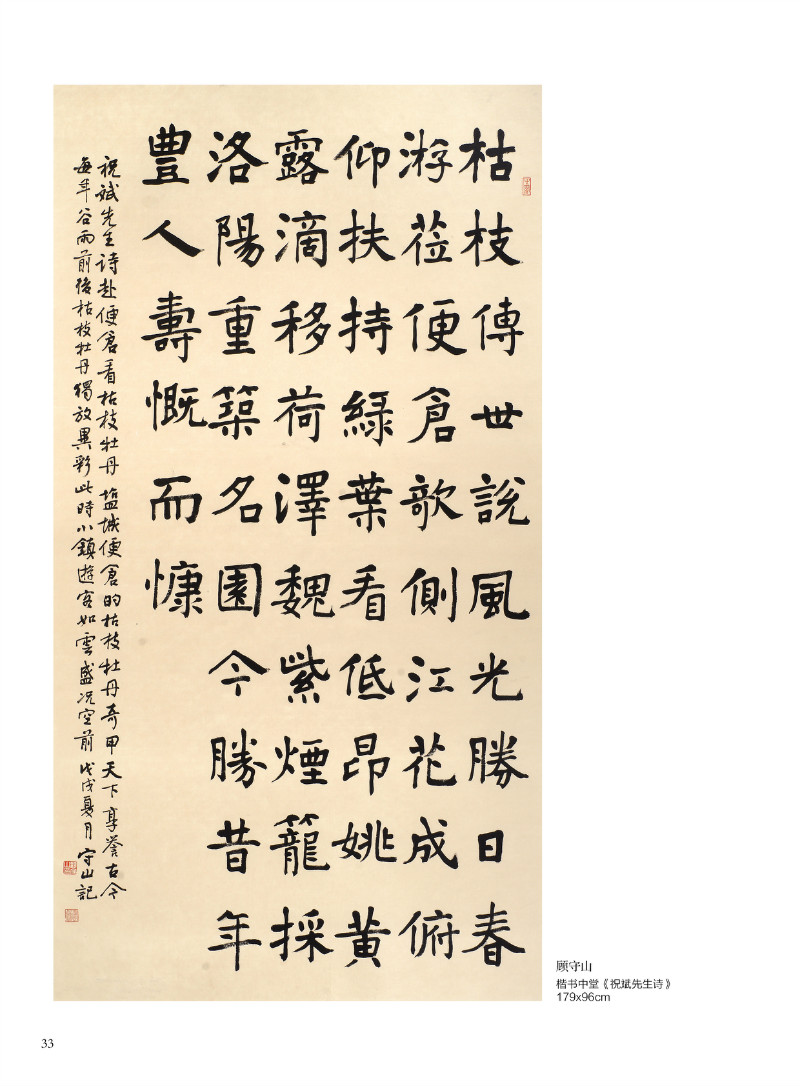 枯枝傳世說風光勝日春
游莅便倉歌側江花成俯
仰扶持綠葉看低昂姚黃
露滴移荷澤魏紫煙籠採
洛陽重築名園今勝昔年
豐人壽慨而慷
祝斌先生诗赴便倉看枯枝牡丹 塩城便倉的枯枝牡丹奇甲天下享誉古今
每年谷雨前後枯枝牡丹獨放異彩此時小鎮遊客如雲盛况空前 戊戌夏月守山記
顾守山
楷书中堂《祝斌先生诗》
179x96cm
33